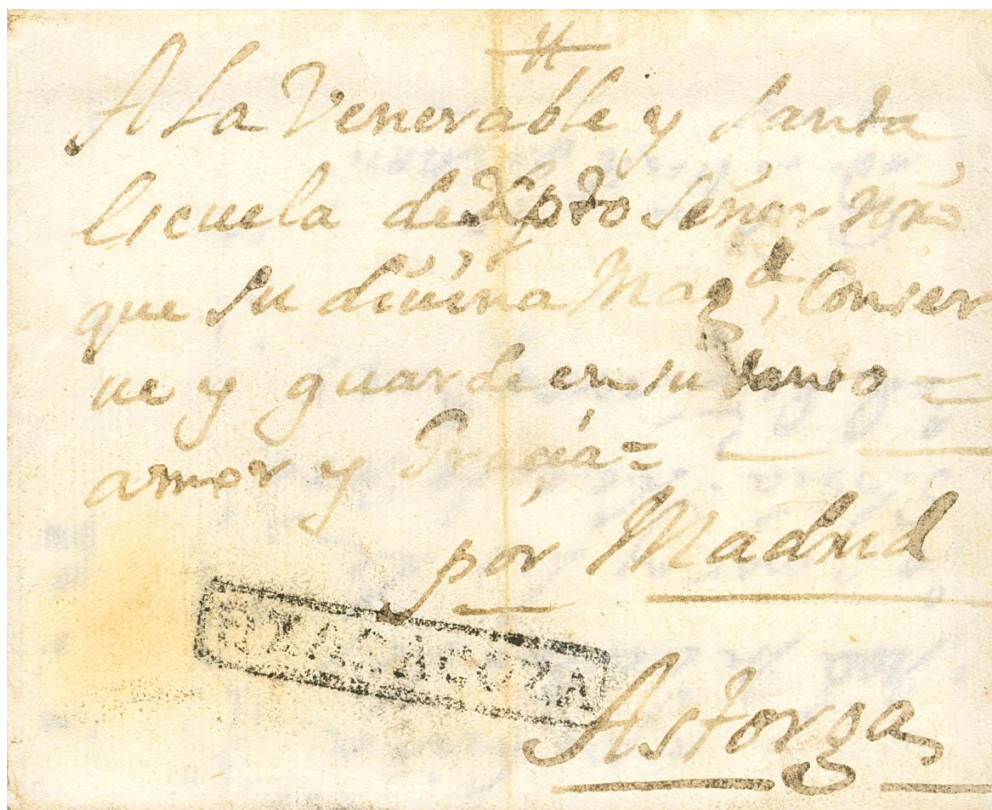 A la Venerable y Santa
Escuela de Xpto Señor nro
que su divina Magd, Conser
ve y guarde en su santo
amor y Gracia=
por Madrid
ZARAGOZA
Astorga